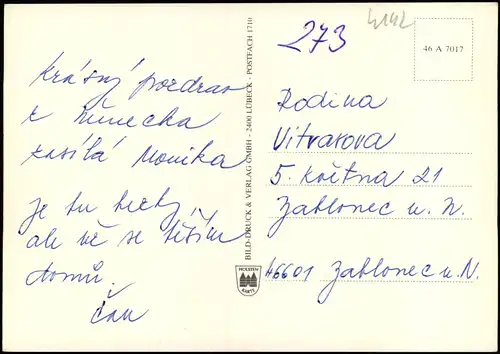 Krásný pozdrav
z Německa
zasílá Monika
Je tu hezky
ale už se těším
domů.
Čau
BILD-DRUCK & VERLAG GMBH - 2400 LÜBECK - POSTFACH 1710
HOLSTEN
KARTE
273
4142
46 A 7017
Rodina
Vitvarova
5. května 21
Jablonec n. N.
46601 Jablonec n. N.